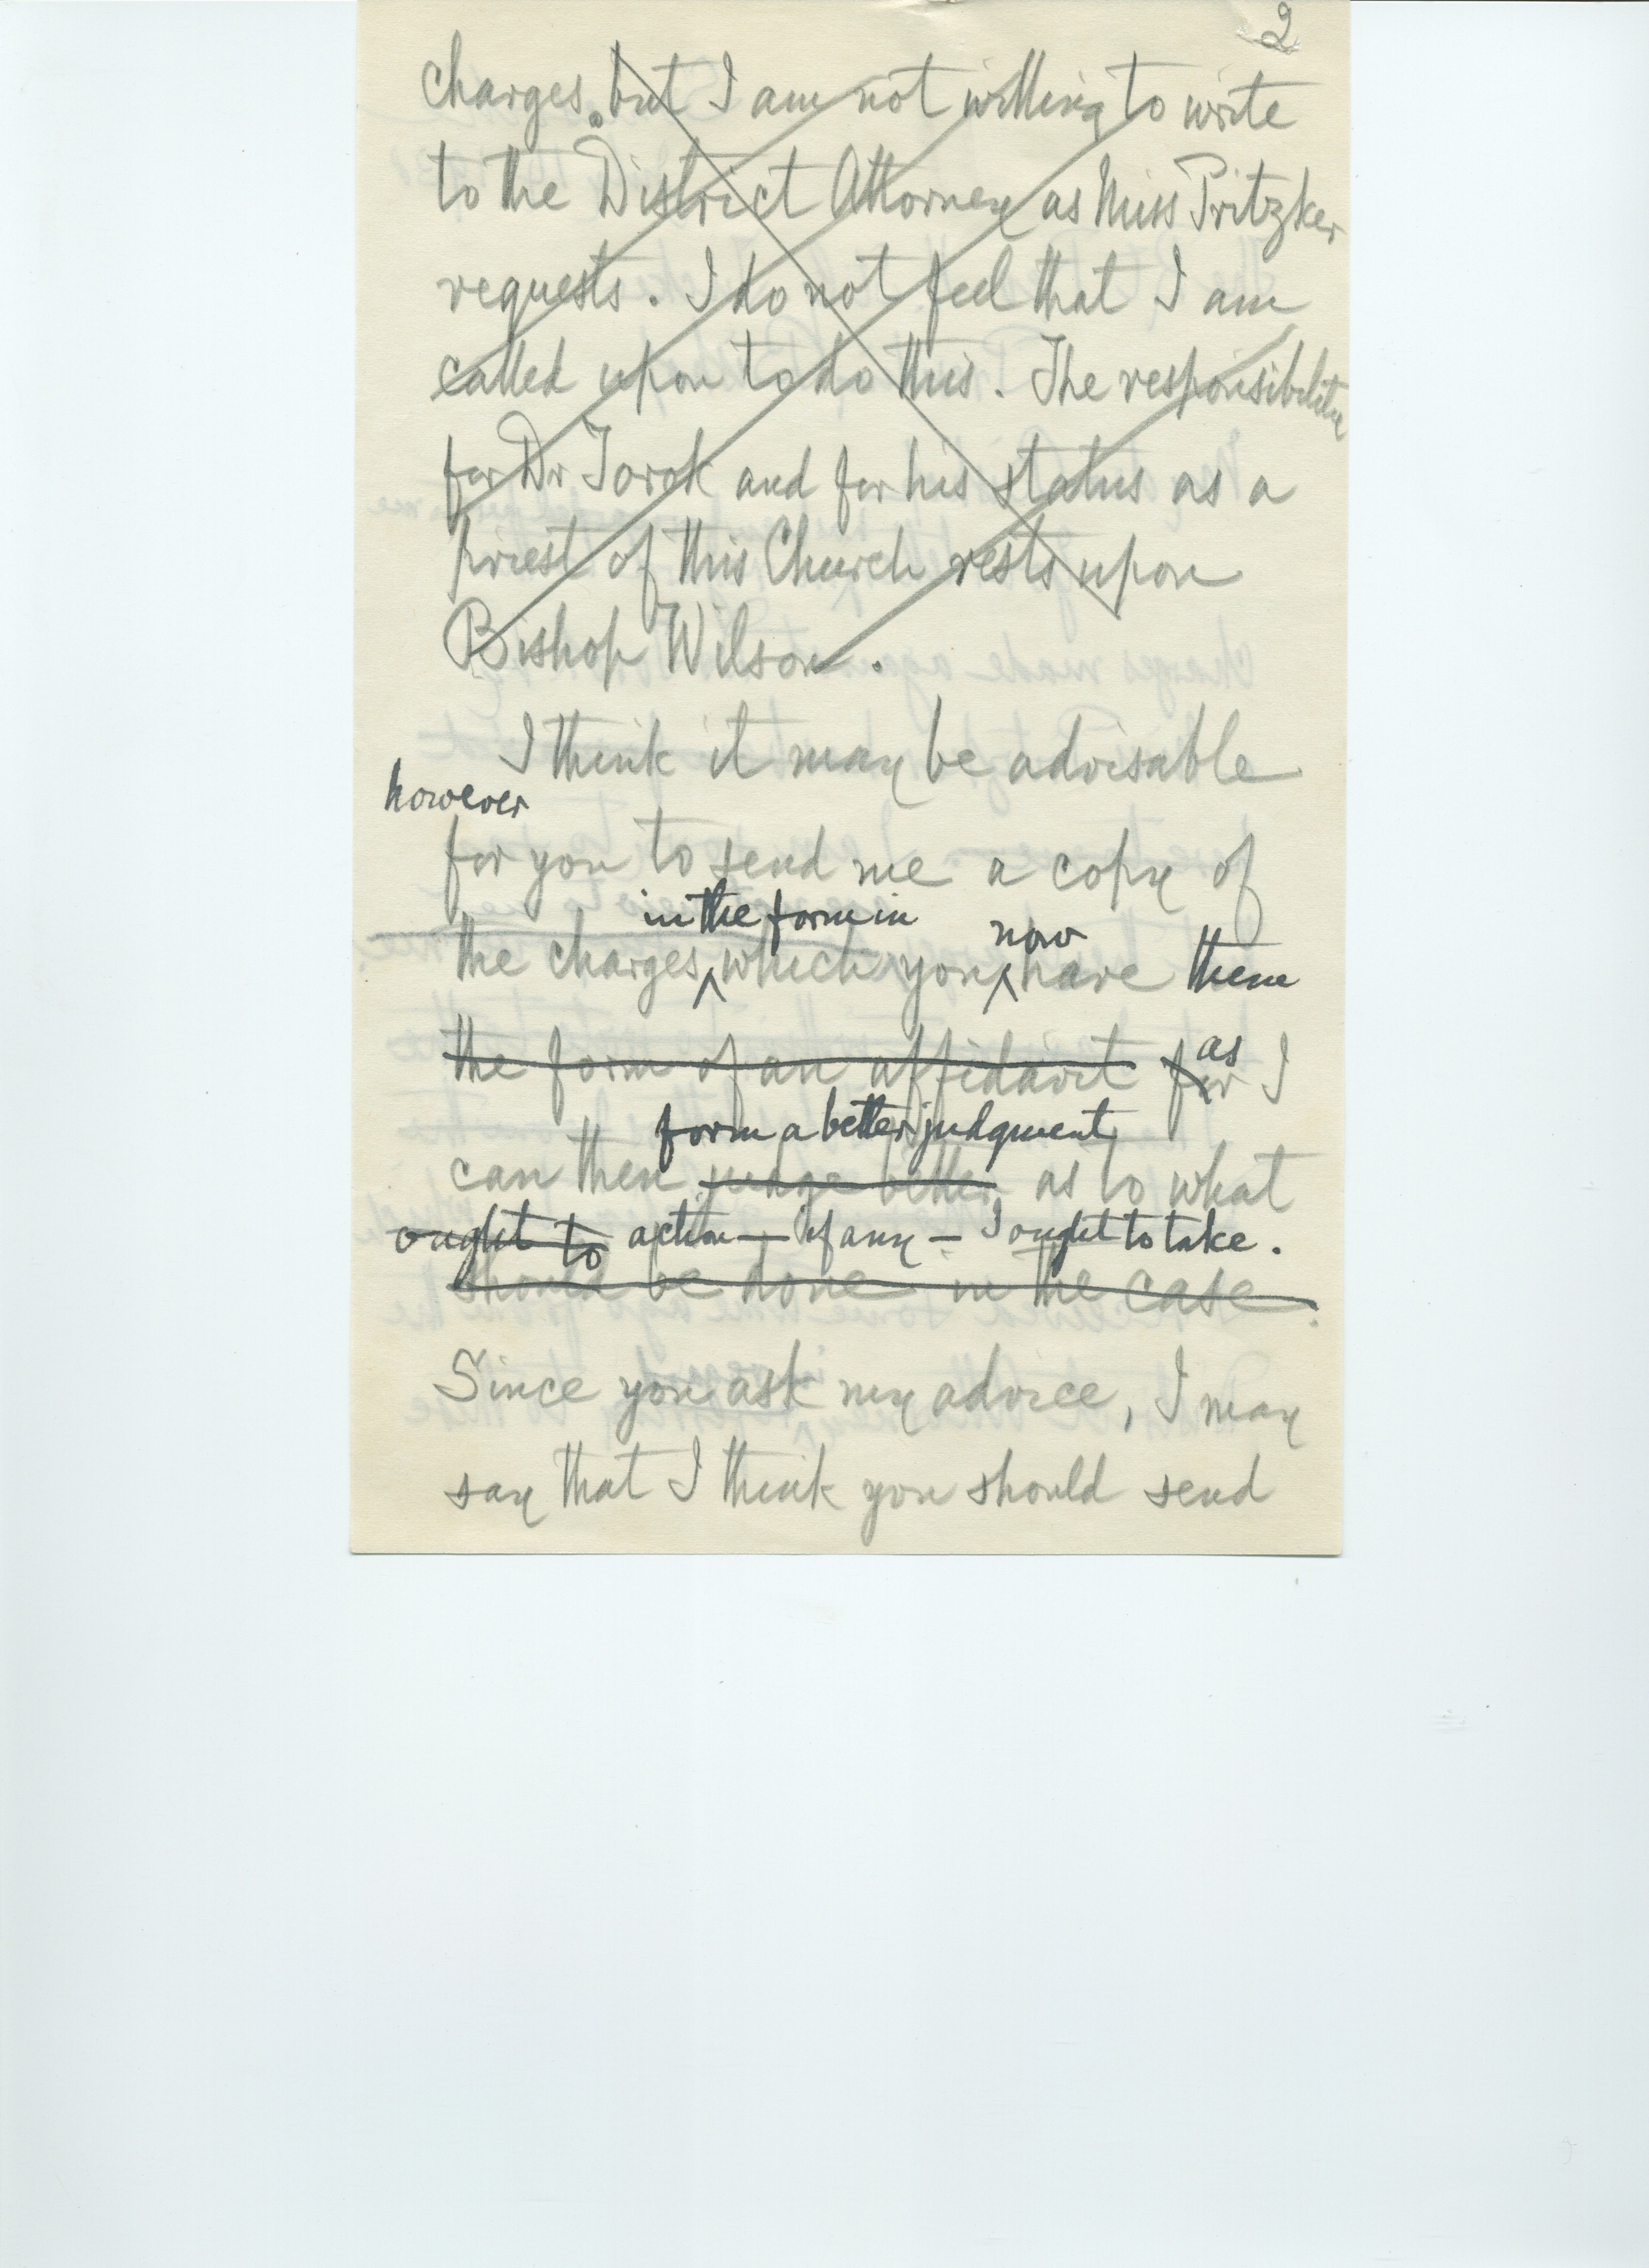 2
charges. but I am not willing to write
to the District Attorney as Miss Pritzker
requests. I do not feel that I am
called upon to do this. The responsibility
for Dr Torok and for his status as a
priest of this Church rests upon
Bishop Wilson.
I think it may be advisable
however
for you to send me a copy of
in the form in now
the charges, which you have them
the form of an affidavit for as I
form a better judgment
can then judge better as to what
ought to action — if any — I ought to take.
should be done in the case.
Since you ask my advice, I may
say that I think you should send